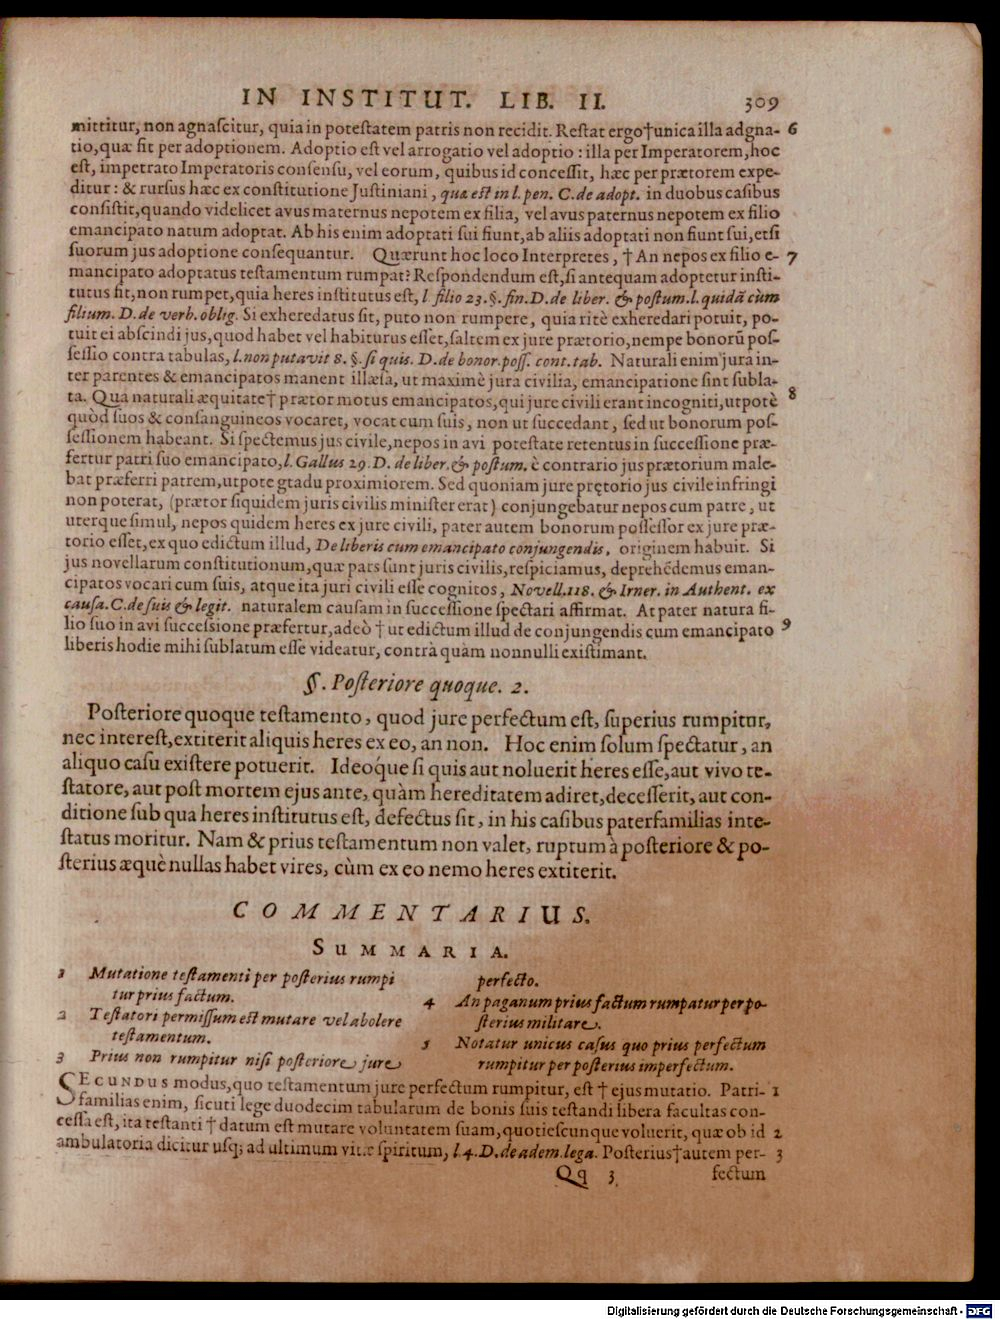 IN INSTITUT. LIB. II. 309
mittitur, non agnaſcitur, quia in poteſtatem patris non recidit. Reſtat ergo†unica illa adgna- 6
tio,quæ fit per adoptionem. Adoptio eſt vel arrogatio vel adoptio : illa per Imperatorem,hoc
eſt, impetrato Imperatoris conſenſu, vel eorum, quibus id conceſſit, hæc per prætorem expe-
ditur : & rurſus hæc ex conſtitutione Juſtiniani, quæ eſt in l. pen. C. de adopt. in duobus caſibus
conſiſtit,quando videlicet avus maternus nepotem ex filia, vel avus paternus nepotem ex filio
emancipato natum adoptat. Ab his enim adoptati ſui fiunt,ab aliis adoptati non fiunt ſui,etſi
ſuorum jus adoptione conſequantur. Quærunt hoc loco Interpretes, † An nepos ex filio e- 7
mancipato adoptatus teſtamentum rumpat? Reſpondendum eſt,ſi antequam adoptetur inſti-
tutus ſit,non rumpet,quia heres inſtitutus eſt, l filio 23.§. fin. D. de liber. & poſtum. l. quidã cùm
filium. D. de verb. oblig. Si exheredatus ſit, puto non rumpere, quia ritè exheredari potuit, po-
tuit ei abſcindi jus,quod habet vel habiturus eſſet,ſaltem ex jure prætorio,nempe bonorũ poſ-
ſeſſio contra tabulas, l. non putavit 8. §. ſi quis. D. de bonor. poſſ. cont. tab. Naturali enim jura in-
ter parentes & emancipatos manent illæſa, ut maximè jura civilia, emancipatione ſint ſubla-
ta. Qua naturali æquitate† prætor motus emancipatos,qui jure civili erant incogniti,utpotè 8
quòd ſuos & conſanguineos vocaret, vocat cum ſuis, non ut ſuccedant, ſed ut bonorum poſ-
ſeſſionem habeant. Si ſpectemus jus civile,nepos in avi poteſtate retentus in ſucceſſione præ-
fertur patri ſuo emancipato, l. Gallus 29. D. de liber. & poſtum. è contrario jus prætorium male-
bat præferri patrem,utpote gradu proximiorem. Sed quoniam jure prętorio jus civile infringi
non poterat, (prætor ſiquidem juris civilis miniſter erat) conjungebatur nepos cum patre, ut
uterque ſimul, nepos quidem heres ex jure civili, pater autem bonorum poſſeſſor ex jure præ-
torio eſſet,ex quo edictum illud, De liberis cum emancipato conjungendis, originem habuit. Si
jus novellarum conſtitutionum,quæ pars ſunt juris civilis,reſpiciamus, deprehẽdemus eman-
cipatos vocari cum ſuis, atque ita juri civili eſſe cognitos, Novell. 118. & Irner. in Authent. ex
cauſa. C. de ſuis & legit. naturalem cauſam in ſucceſſione ſpectari affirmat. At pater natura fi-
lio ſuo in avi ſucceſſione præfertur,adeò † ut edictum illud de conjungendis cum emancipato 9
liberis hodie mihi ſublatum eſſe videatur, contrà quàm nonnulli exiſtimant.
§. Poſteriore quoque. 2.
Poſteriore quoque teſtamento, quod jure perfectum eſt, ſuperius rumpitur,
nec intereſt,extiterit aliquis heres ex eo, an non. Hoc enim ſolum ſpectatur, an
aliquo caſu exiſtere potuerit. Ideoque ſi quis aut noluerit heres eſſe,aut vivo te-
ſtatore, aut poſt mortem ejus ante, quàm hereditatem adiret,deceſſerit, aut con-
ditione ſub qua heres inſtitutus eſt, defectus ſit, in his caſibus paterfamilias inte-
ſtatus moritur. Nam & prius teſtamentum non valet, ruptum à poſteriore & po-
ſterius æquè nullas habet vires, cùm ex eo nemo heres extiterit.
COMMENTARIUS.
SUMMARIA.
1 Mutatione teſtamenti per poſterius rumpi
tur prius factum.
2 Teſtatori permiſſum eſt mutare vel abolere
teſtamentum.
3 Prius non rumpitur niſi poſteriore jure
perfecto.
4 An paganum prius factum rumpatur per po-
ſterius militare.
5 Notatur unicus caſus quo prius perfectum
rumpitur per poſterius imperfectum.
SECUNDUS modus,quo teſtamentum jure perfectum rumpitur, eſt † ejus mutatio. Patri- 1
familias enim, ſicuti lege duodecim tabularum de bonis ſuis teſtandi libera facultas con-
ceſſa eſt, ita teſtanti † datum eſt mutare voluntatem ſuam,quotieſcunque voluerit, quæ ob id 2
ambulatoria dicitur uſq; ad ultimum vitæ ſpiritum, l. 4. D. de adem. lega. Poſterius†autem per- 3
Qq 3 fectum
Digitalisierung gefördert durch die Deutsche Forschungsgemeinschaft - DFG